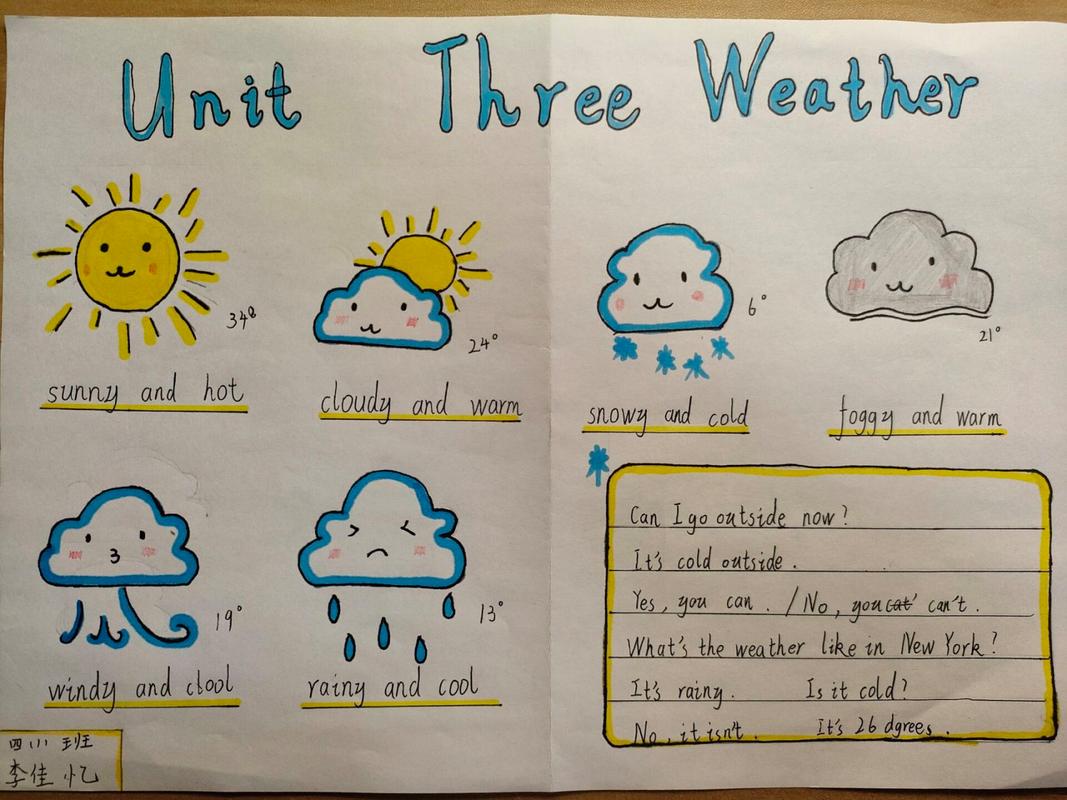 Unit Three Weather
34°
sunny and hot
24°
cloudy and warm
6°
snowy and cold
21°
foggy and warm
19°
windy and cool
13°
rainy and cool
Can I go outside now?
It's cold outside.
Yes, you can. / No, you cat' can't.
What's the weather like in New York?
It's rainy. Is it cold?
No, it isn't. It's 26 dgrees.
四 (1) 班
李佳忆